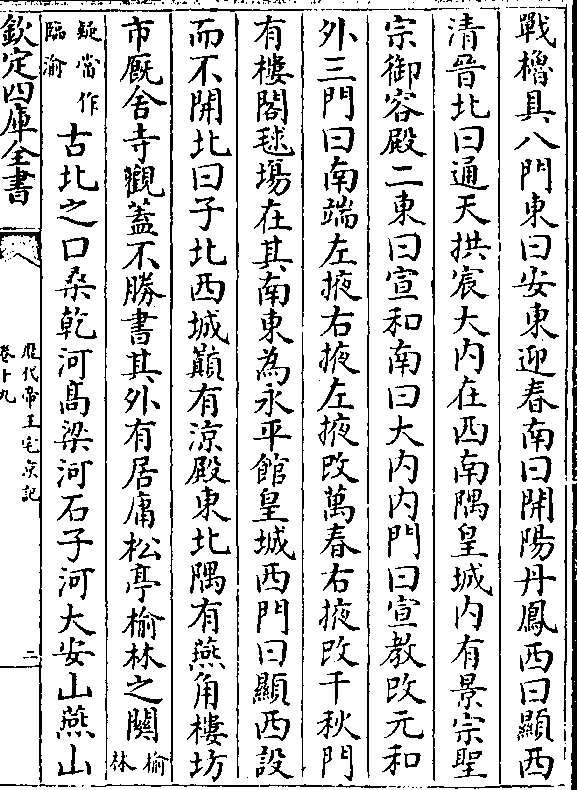 戰櫓具八門東曰安東迎春南曰開陽丹鳳西曰顯西
清晉北曰通天拱宸大内在西南隅皇城内有景宗聖
宗御容殿二東曰宣和南曰大内内門曰宣教改元和
外三門曰南端左掖右掖左掖改萬春右掖改千秋門
有樓閣毬塲在其南東為永平館皇城西門曰顯西設
而不開北曰子北西城巔有涼殿東北隅有燕角樓坊
市廨舍寺觀蓋不勝書其外有居庸松亭榆林之關榆林
疑當作臨渝古北之口桑乾河髙梁河石子河大安山燕山
欽定四庫全書
歷代帝王宅京記
卷十九
二